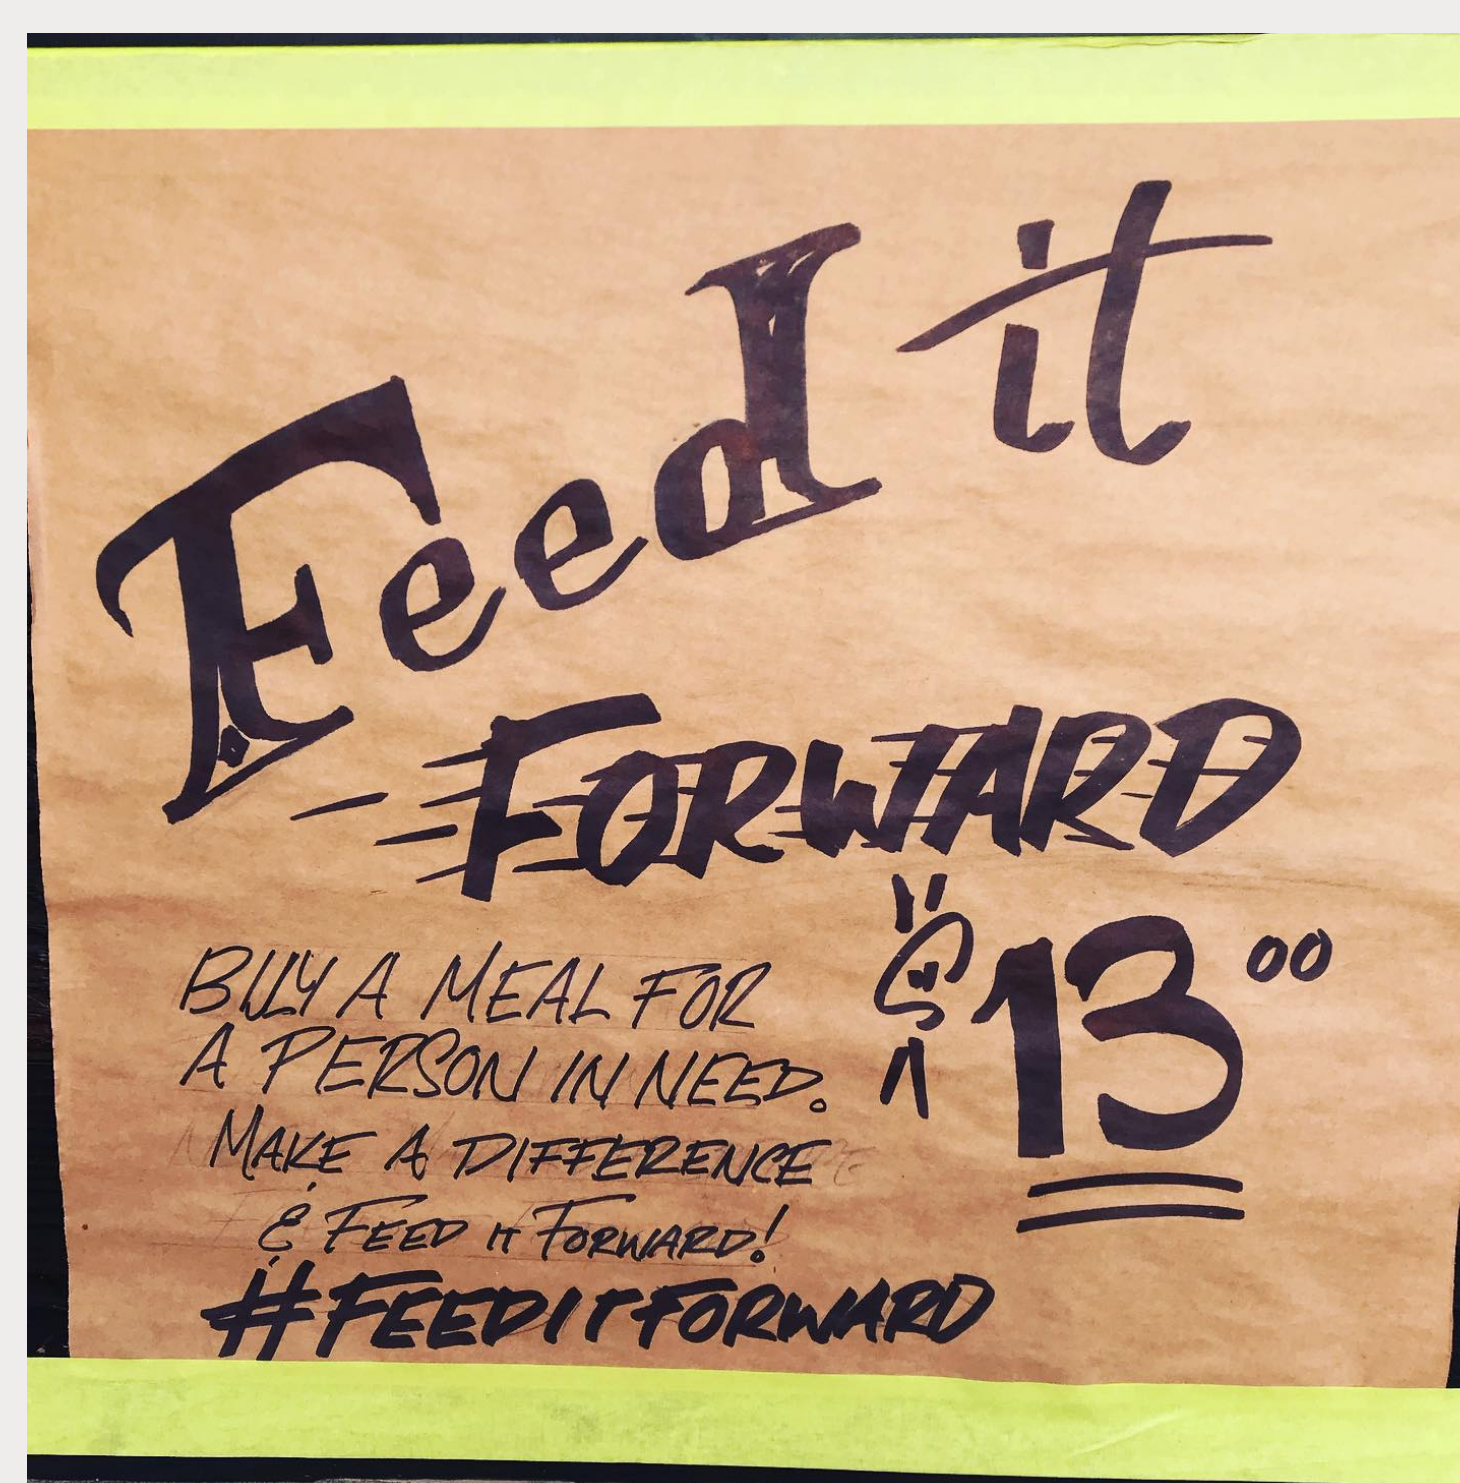 Feed it
FORWARD
$13.00
BUY A MEAL FOR
A PERSON IN NEED.
MAKE A DIFFERENCE
& FEED IT FORWARD!
#FEEDITFORWARD